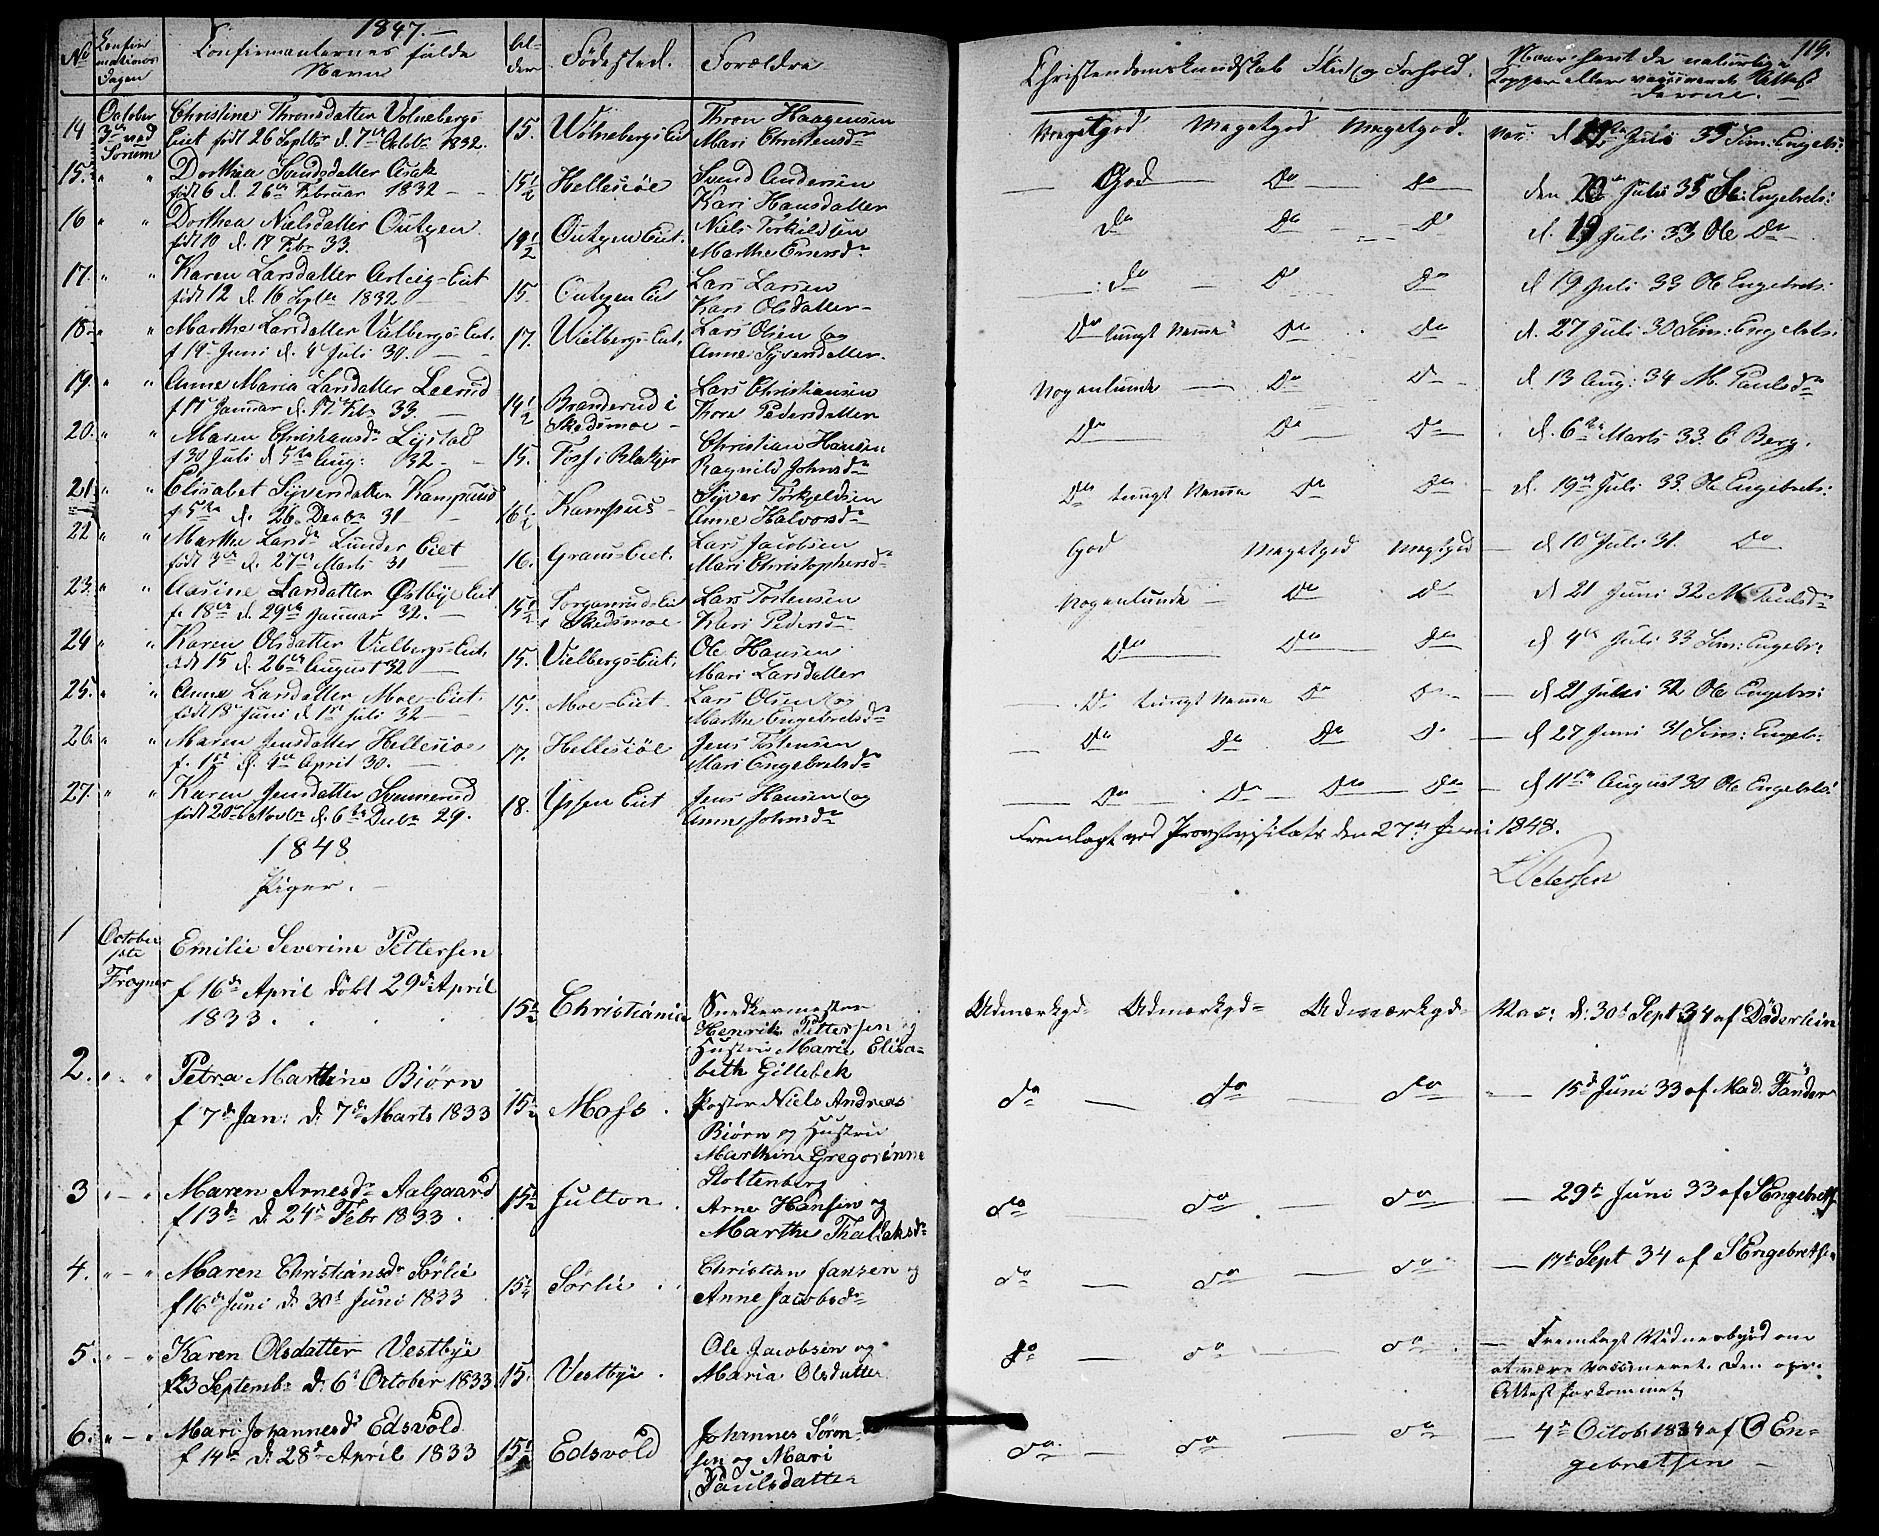 1847.
No
Confir
mations
Dagen
Confirmanternes fulde
Navne
Al-
der
Fødested.
Forældre
Christendomskundskab Flid og Forhold.
119.
Naar havt de naturlige
Kopper eller vaccinerede Attest
derom.
14 October
3die ved
Sørum
Christine Thronsdatter Volneberg-
Eiet født 26 Septbr d. 7de Octbr 1832.
15. Volneberg-Eiet
Thron Haagensen
Mari Christensdr
Megetgod Megetgod Megetgod. Vac: d Juli 33 Sim: Engebr:
15. " " Dorthea Svendsdatter Asak
født 6 d. 26de Februar 1832
15 1/2 Hellesiøe
Svend Andersen
Kari Hansdatter
God Do Do den 20de Juli 35 S: Engebrets:
16 " " Dorthea Nielsdatter Outgen
født 10 d. 17 Febr 33.
14 1/2 Outgen Eiet.
Niels Torkildsen
Marthe Enersdr
do Do Do d. 19 Juli 33 Ole Do
17. " " Karen Larsdatter Eiet
født 12 d. 16 Septbr 1832
15 Outgen Eiet
Lars Larsen
Kari Olsdatter
do Do Do d 19 Juli 33 Ole Engebrets:
18 " " Marthe Larsdatter Vielbergs-Eiet.
f 19 Juni d. 4 Juli 30.
17. Vielbergs-Eiet.
Lars Olsen og
Anne Syversdatter.
Do tungt Nemme Do Do d. 27 Juli 30 Sim: Engebrts:
19. " " Anne Maria Larsdatter Leerud
f 17 Januar d. 17 Febr 33.
14 1/2 Branderud i
Skedsmoe
Lars Christiansen
Thore Pedersdatter
Nogenlunde Do Do d 13 Aug: 34 M. Paulsdr
20. " " Maren Christiansdr Lystad
f 30 Juli d 5te Aug: 32
15. Foss i Blakjer
Christian Hansen
Ragnild Johnsdr
Do Do Do d. 6te Marts 33. C Berg.
21 " " Elisabet Syversdatter Kampuus
f 5te d. 26 Decbr 31
16 1/2 Kampus
Syver Torkjeldsen
Anne Halvorsdr
Do tungt Nemme Do Do d. 19de Juli 33. Ole Engebrets:
22 " " Marthe Larsdr Lunder Eiet
født 3de d. 27de Marts 31
16. Eiet.
Lars Jacobsen
Mari Christophersdr
God Megetgod Megetgod d 10 Juli 31. Do
23. " " Aasine Larsdatter Østbye Eiet
f. 18de d. 29de Januar 32.
15 1/2 Eiet
i Skedsmoe
Lars Tostensen
Kari Pedersdr
Nogenlunde Do Do d 21 Juni 32 M. Paulsdr
24 " " Karen Olsdatter Vielbergs-Eiet.
født 15 d. 26de August 32
15. Vielbergs-Eiet.
Ole Hansen
Mari Larsdatter
Do Do Do d 4de Juli 33 Sim: Engebr:
25. " " Anne Larsdatter Moe-Eiet.
født 18 Juni d 1ste Juli 32
15. Moe-Eiet
Lars Olsen og
Marthe Engebretsdr
Do tungt Nemme Do Do d 21 Juli 32 Ole Engebrets:
26. " " Maren Jensdatter Hellesiøe
f. 1ste d. 9de April 30.
17. Hellesiøe
Jens Tostensen
Mari Engebretsdr
Do Do Do Do d 27 Juni 31 Sim: Engeb:
27. " " Karen Jensdatter
født 20de Novbr d. 6te Decbr 29.
18. Ypsen Eiet
Jens Hansen og
Anne Johnsdr
Do Do Do Do d 11te August 30 Ole Engebrets:
Fremlagt ved Provstvisitats den 27de Juni 1848.
Petersen
1848
Piger.
1 October
1ste
Frogner
Emilie Severine Pettersen
f 16de April døbt 29de April
1833.
15 1/2 Christiania
Snedkermester
Henrik Pettersen og
Hustru Marie Elisa-
beth Gillebek
Udmærkgd Udmærkgd Udmærkgd Vac: d. 30te Sept 34 af Døderlein
2. " " Petra Marthine Biørn
f 7de Jan: d. 7de Marts 1833
15 1/2 Moss.
Pastor Niels Andreas
Biørn og Hustru
Marthine Gregorinne
Stoltenberg
do do do 15de Juni 33 af Mad. Fander
3 " " Maren Arnesdr Aalgaard
f 13de d. 24de Febr 1833.
15 1/2 Julton.
Arne Hansen og
Marthe
do do do 29de Juni 33 af S Engebretsn
4. " " Maren Christiansdr Sørlie
f 16de Juni d. 30te Juni 1833
15 1/4 Sørlie
Christian Jansen og
Anne Jacobsdr
do do do 17de Sept 34 af S Engebretsn
5. " " Karen Olsdatter Vestbye
f 23 Septembr d. 6te October 1833.
15. Vestbye.
Ole Jacobsen og
Maria Olsdatter
do do do Fremlagt Vidnesbyrd om
at være vaccineret. Den opr.
Attest forkommet
6. " " Mari Johannesdr Edsvold
f 14de d. 28de April 1833
15 1/2 Edsvold
Johannes Søren-
sen og Mari
Paulsdatter
do do do 4de Octob 1834 af O En-
gebretsen